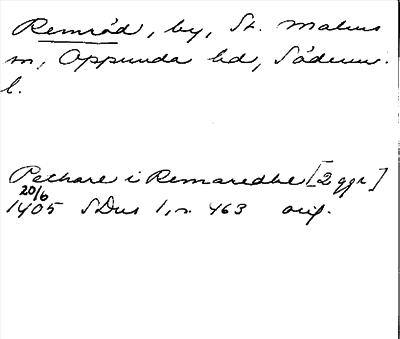 Remröd, by, St. Malms
sn, Oppunda hd, Söderm.
l.
Pethare i Remarødhe [2 ggr]
20/6
1405 SDns 1, n. 463 orig.